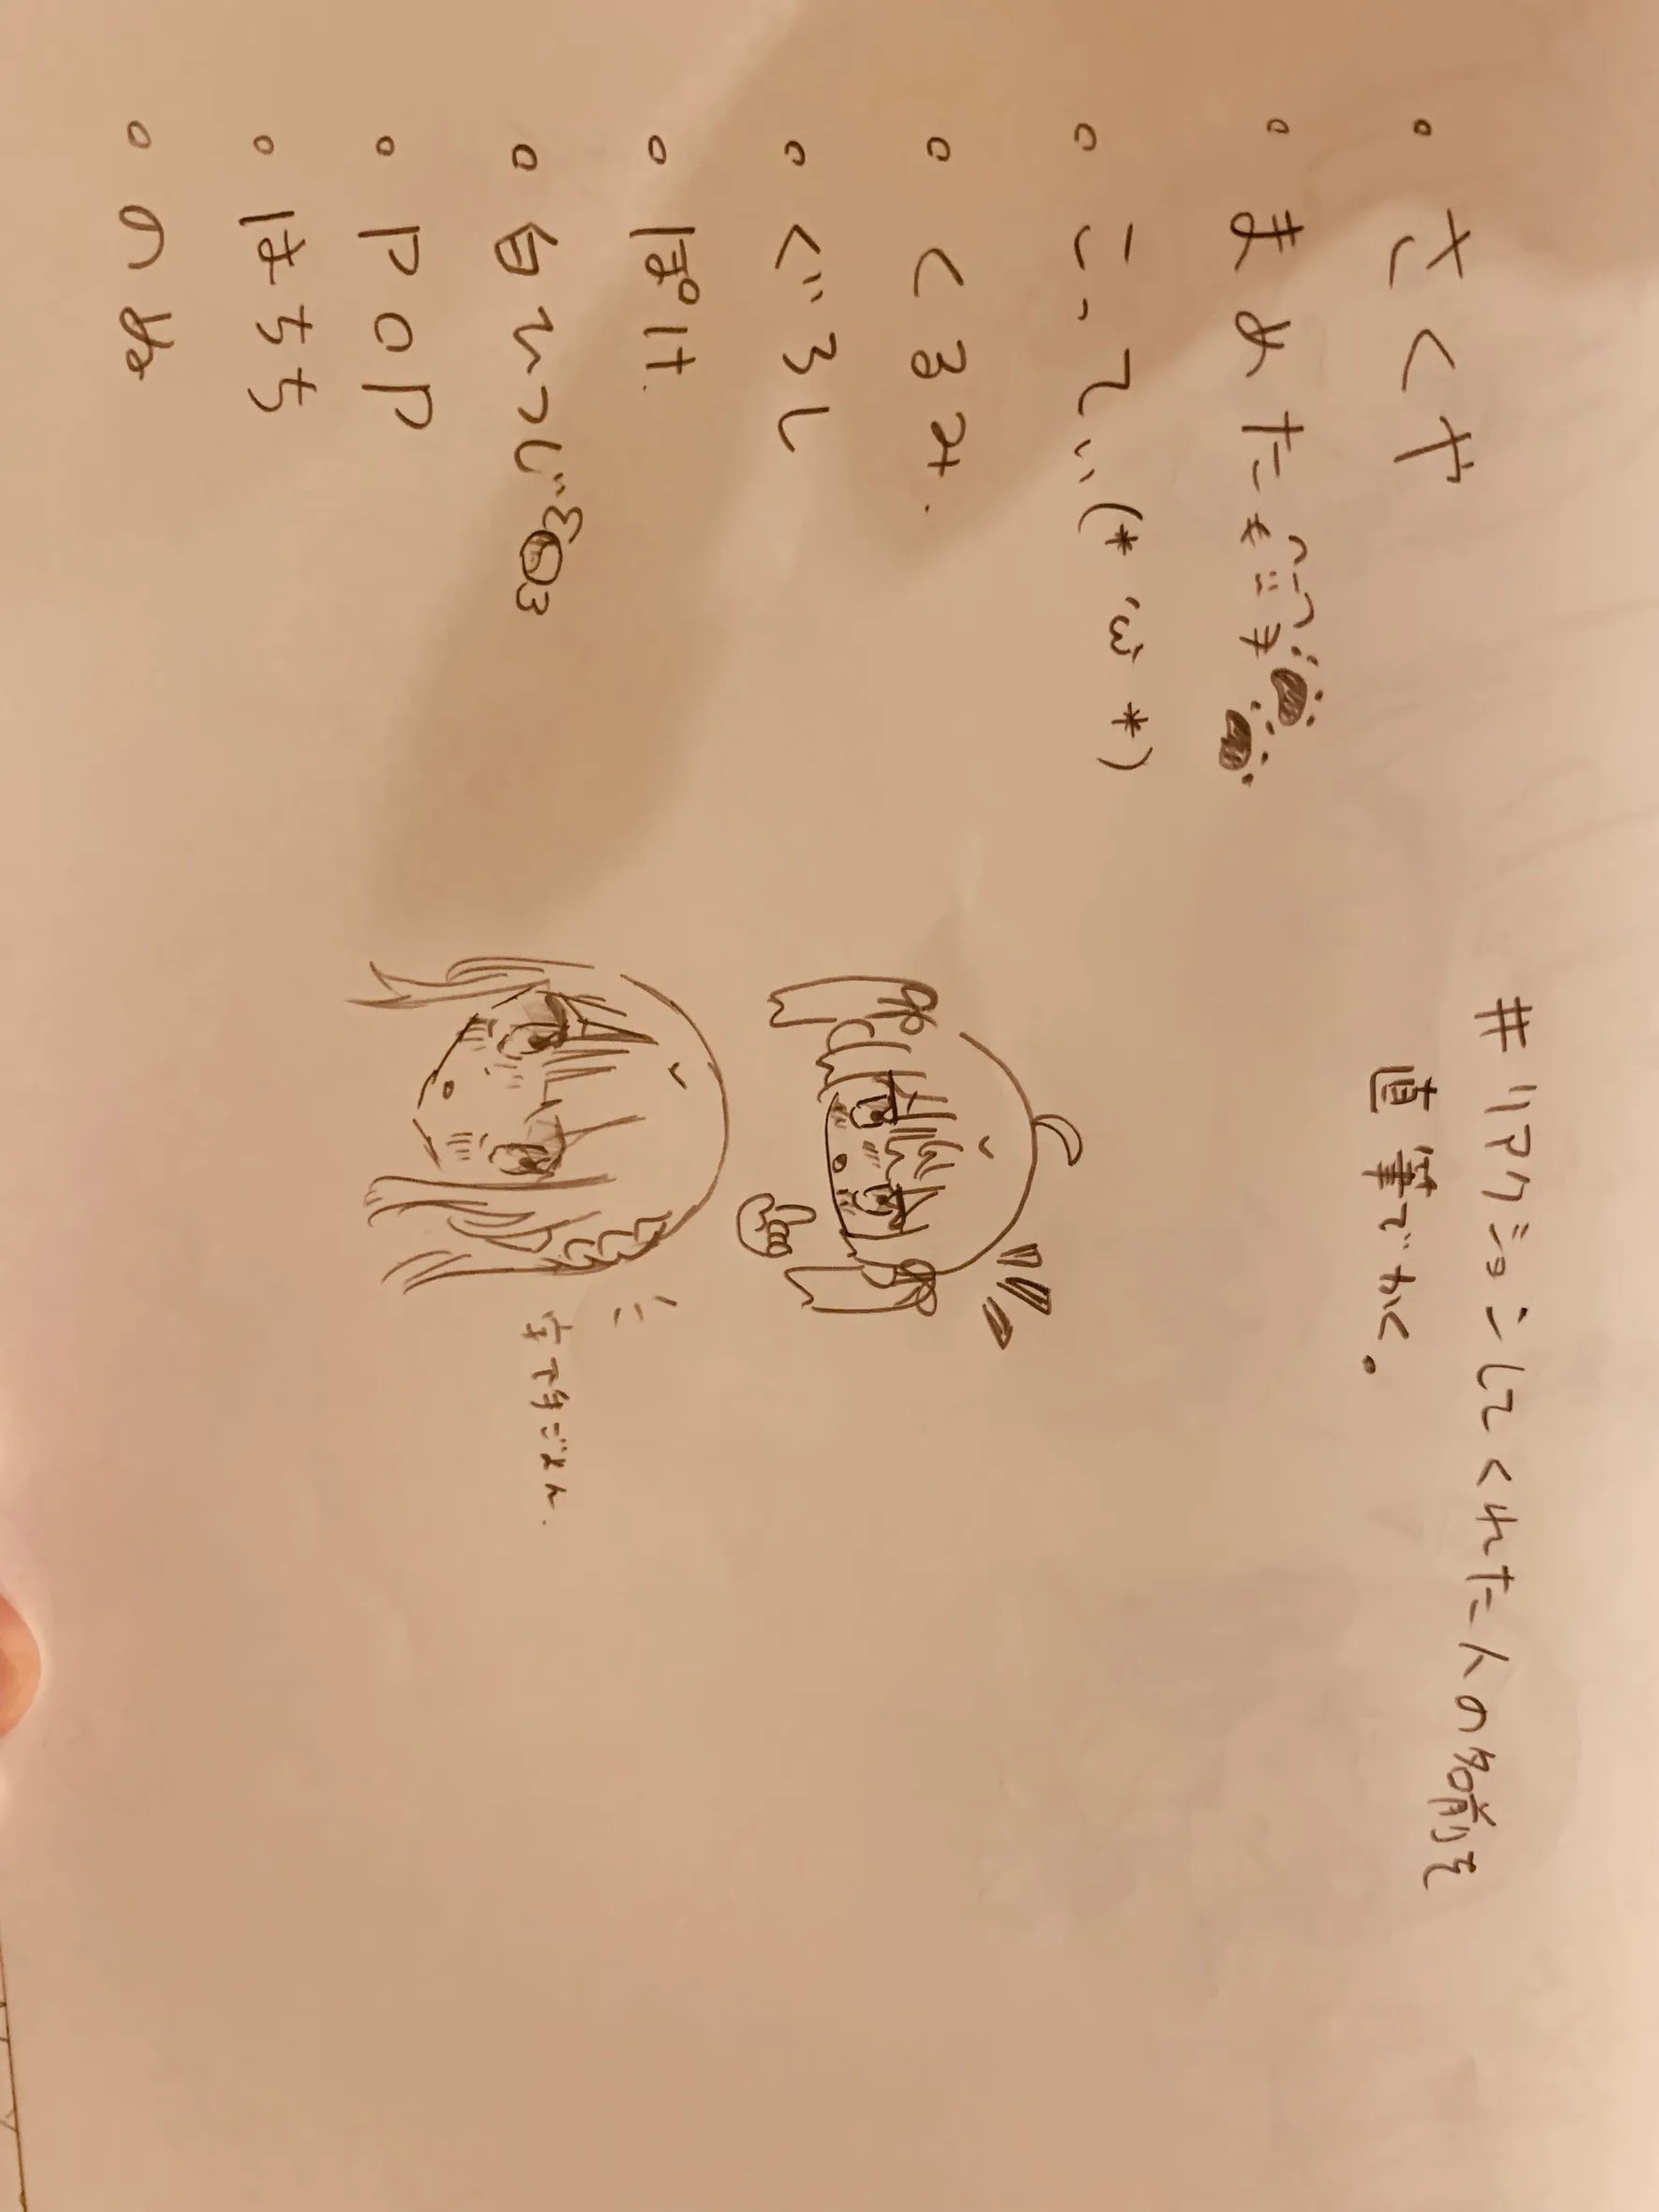 #リアクションしてくれた人の名前を
直筆でかく。
◦ さくや
◦ まめた
◦ こってぃ(*'ω'*)
◦ くるみ.
◦ ぐろし
◦ ぽけ.
◦ 白ひつじ
◦ POP
◦ はちち
◦ のぬ
字下手ごめん.